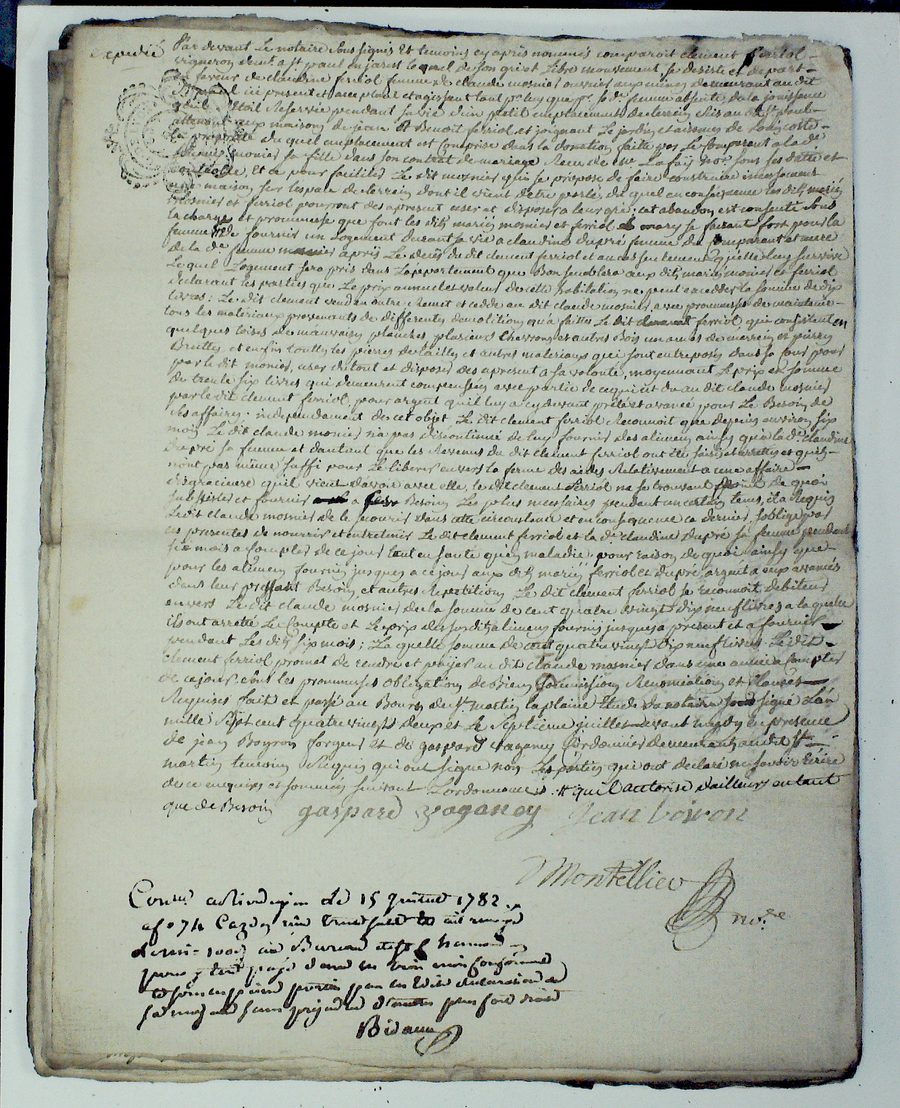 Expedié
Par devant Le notaire sous signé Et temoins cy apres nommés comparoit clement ferriol
vigneron demt a st paul en jarest lequel de son gré et Libre mouvement se desiste et depart
en faveur de claudine ferriol femme de claude mosnier ouvrier aux mines demeurant au dit
st paul ici present et acceptant et agissant tant pr luy que pr sa de femme absente, de la jouissance
qu'il s'etoit Reservée pendant sa vie d'un petit emplacement de terrein situé au dit st paul
attenant aux maisons de jean et Benoit ferriol et joignant Le jardin et aisances de
La proprieté du quel emplacement est Comprise dans la donation faitte par Le Comparant a la de
femme mosnier sa fille dans son contrat de mariage Reçu de me La fay nore sous ses datte et
Et ce pour faciliter Le dit mosnier qui se propose de faire construire incessament
une maison sur l'espace de terrein dont il vient d'etre parlé, du quel en consequence les dits mariés
mosnier et ferriol pourront des apresent user et disposer a leur gré; cet abandon est consenti sous
La charge et prommesse que font les dits mariés mosnier et ferriol Le mary se faisant fort pour la
femme de fournir un Logement durant sa vie a claudine dupré femme du Comparant et mere
de la de femme mosnier apres Le deces du dit clement ferriol et au cas seulement qu'elle luy survive
Le quel Logement sera pris dans L'apartement que Bon semblera aux dits mariés mosnier et ferriol
declarant les parties que Le prix annuel et valeur de cette habitation ne peut exceder la somme de dix
livres; Le dit clement vend en outre Remet et cedde au dit claude mosnier avec prommesse de maintenir
tous les materiaux provenants de differentes demolitions qu'a faittes Le dit clement ferriol qui consistent en
quelques toises de mauvaises planches plusieurs chevrons et autres Bois un amas de marrein et pierres
Bruttes et enfin touttes les pierres de tailles et autres materiaux qui sont entreposés dans sa Cour pour
par le dit mosnier user du tout et disposer des apresent a sa volonté, moyennant Le prix et somme
de trente six livres qui demeurent compensées avec partie de ce qui est du au dit claude mosnier
par le dit clement ferriol, pour argent qu'il luy a cy devant prêté et avancé pour Le Besoin de
ses affaires. independament de cet objet Le dit clement ferriol Reconnoit que depuis environ six
mois Le dit claude mosnier n'a pas discontinué de leur fournir des alimens ainsy qu'a la de claudine
dupré sa femme et d'autant que les Revenus du dit clement ferriol ont été saisis et arrettés et qu'ils
n'ont pas meme suffi pour Le liberer envers la ferme des aides Relativement a une affaire
disgracieuse qu'il vient d'avoir avec elle, le dit clement ferriol ne se trouvant de quoi
subsister et fournir a Besoins Les plus necessaires pendant un certain tems, il a Requis
Le dit claude mosnier de le nourrir dans cette circonstance et en consequence ce dernier s'oblige par
ces presentes de nourrir et entretenir Le dit clement ferriol et la de claudine dupré sa femme pendant
six mois a Compter de ce jour tant en santé qu'en maladie, pour raison de quoi ainsy que
pour les alimens fournis jusques a ce jour aux dits mariés ferriol et dupré, argent a eux avancés
dans leur pressant Besoin et autres Repetitions Le dit clement ferriol se Reconnoit debiteur
envers Le dit claude mosnier de la somme de cent quatre vingt dix neuf livres a la quelle
ils ont arretté Le Compte et Le prix des susdits alimens fournis jusques a present et a fournir
pendant Les dits six mois; La quelle somme de cent quatre vingt dix neuf livres Le dit
clement ferriol promet de rendre et payer au dit claude mosnier dans une année a Compter
de ce jour. sous les prommesses obligation de Biens soumissions Renonciations et Clauses
Requises fait et passé au Bourg de st martin la plaine Etude du notaire sous signé L'an
mille sept cent quatre vingt deux et Le septieme juillet avant midy en presence
de jean Boyron forgeur et de gaspard zaganey Cordonnier demeurants au dit st
martin temoins Requis qui ont signé non Les parties qui ont declaré ne savoir Ecrire
de ce enquises et sommées suivant L'ordonnance. # qu'il autorise d'ailleurs en tant
que de Besoin
gaspard zaganey Jean boiron
Montellier nore
Conlé a Rivedegier Le 15 juillet 1782
fo 74 Cazes
Bureau
Bidaux